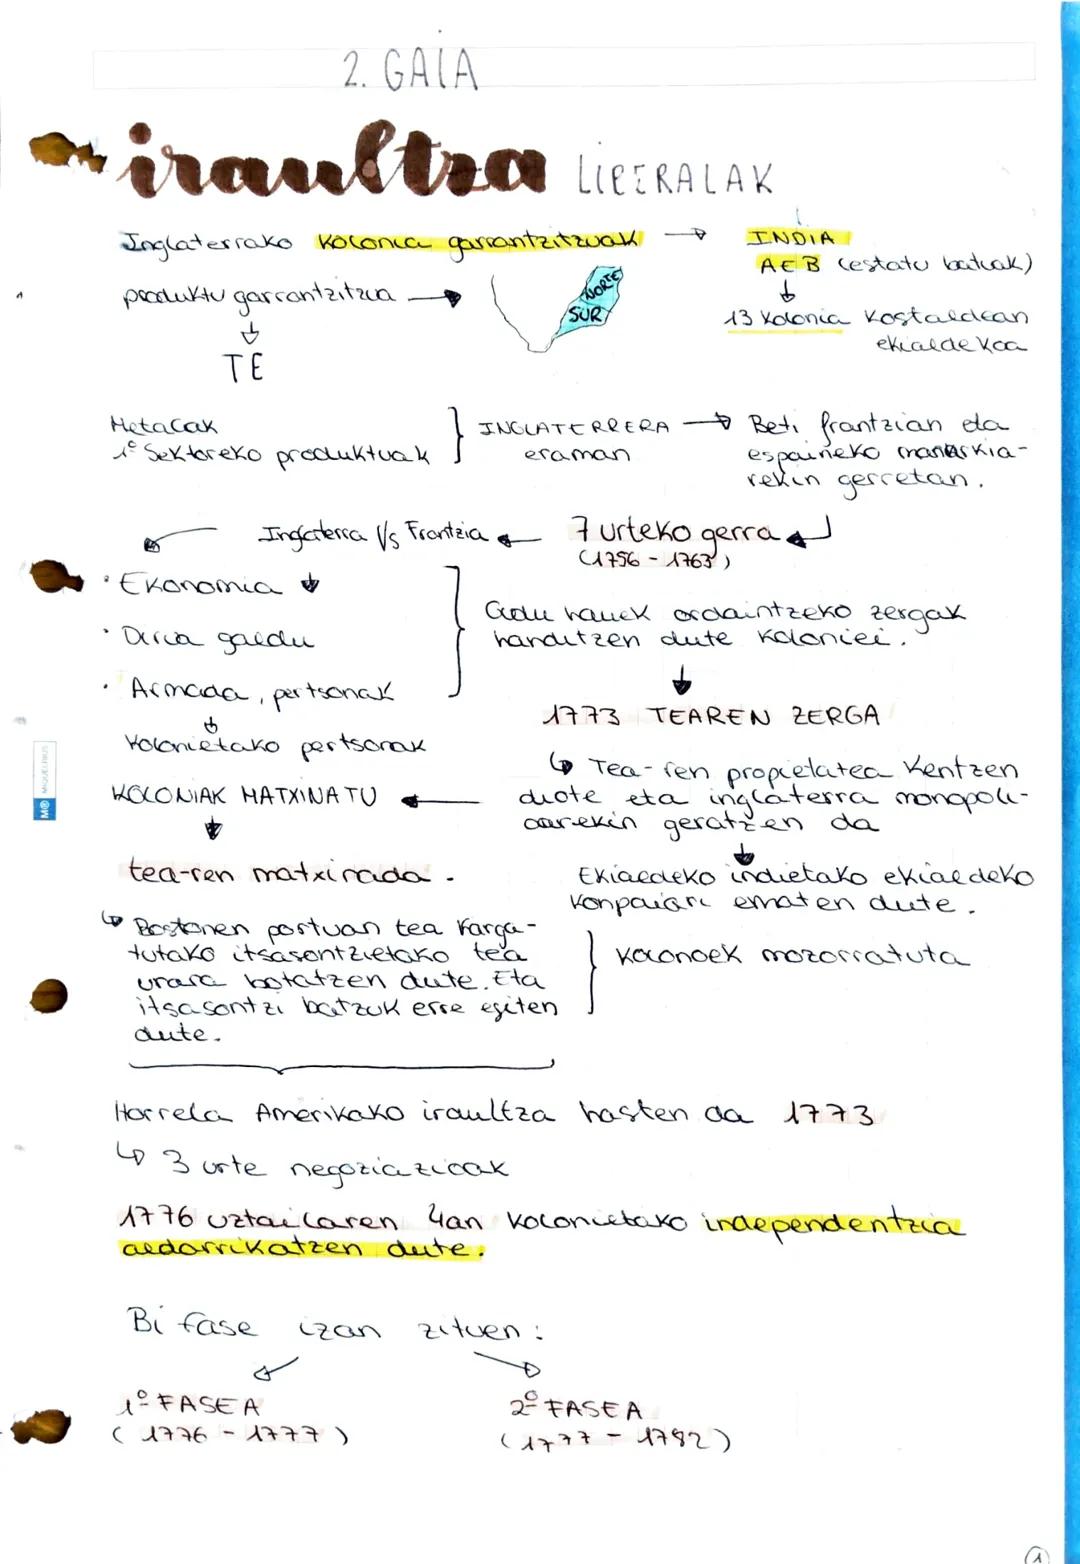 2. GAIA
iraultza LIBERALAK
Inglaterrako kolonia garrantzitzuak → INDIA
AEB (estatu batuak)
produktu garrantzitzua →
NORTE
SUR
13 kolonia kostaldean
ekialdekoa
TE
Metalak
1º Sektoreko produktuak
INGLATERRERA →
eraman
Beti frantzian eta
espaineko monarkia-
rekin gerretan.
7 urteko gerra
(1756 - 1763)
Inglaterra V/s Frantzia
· Ekonomia ↓
· Dirua galdu
· Armada, pertsonak
kolonietako pertsonak
Gudu hauek ordaintzeko zergak
handitzen dute koloniei.
1773 TEAREN ZERGA
↳ Tea-ren propietatea kentzen
diote eta inglaterra monopoli-
oarekin geratzen da
Ekialdeko indietako ekialdeko
konpaiari ematen dute.
KOLONIAK MATXINATU
tea-ren matxinada.
↳ Bostonen portuan tea karga-
tutako itsasontzietako tea
urara botatzen dute. Eta
itsasontzi batzuk erre egiten
dute.
kolonoek mozorratuta
Horrela Amerikako iraultza hasten da 1773
↳ 3 urte negoziazioak
1776 uztailaren 4an kolonietako independentzia
aldarrikatzen dute.
Bi fase izan zituen:
1º FASEA
(1776 - 1777)
2º FASEA
(1777 - 1782)
MIQUELRIUS
1